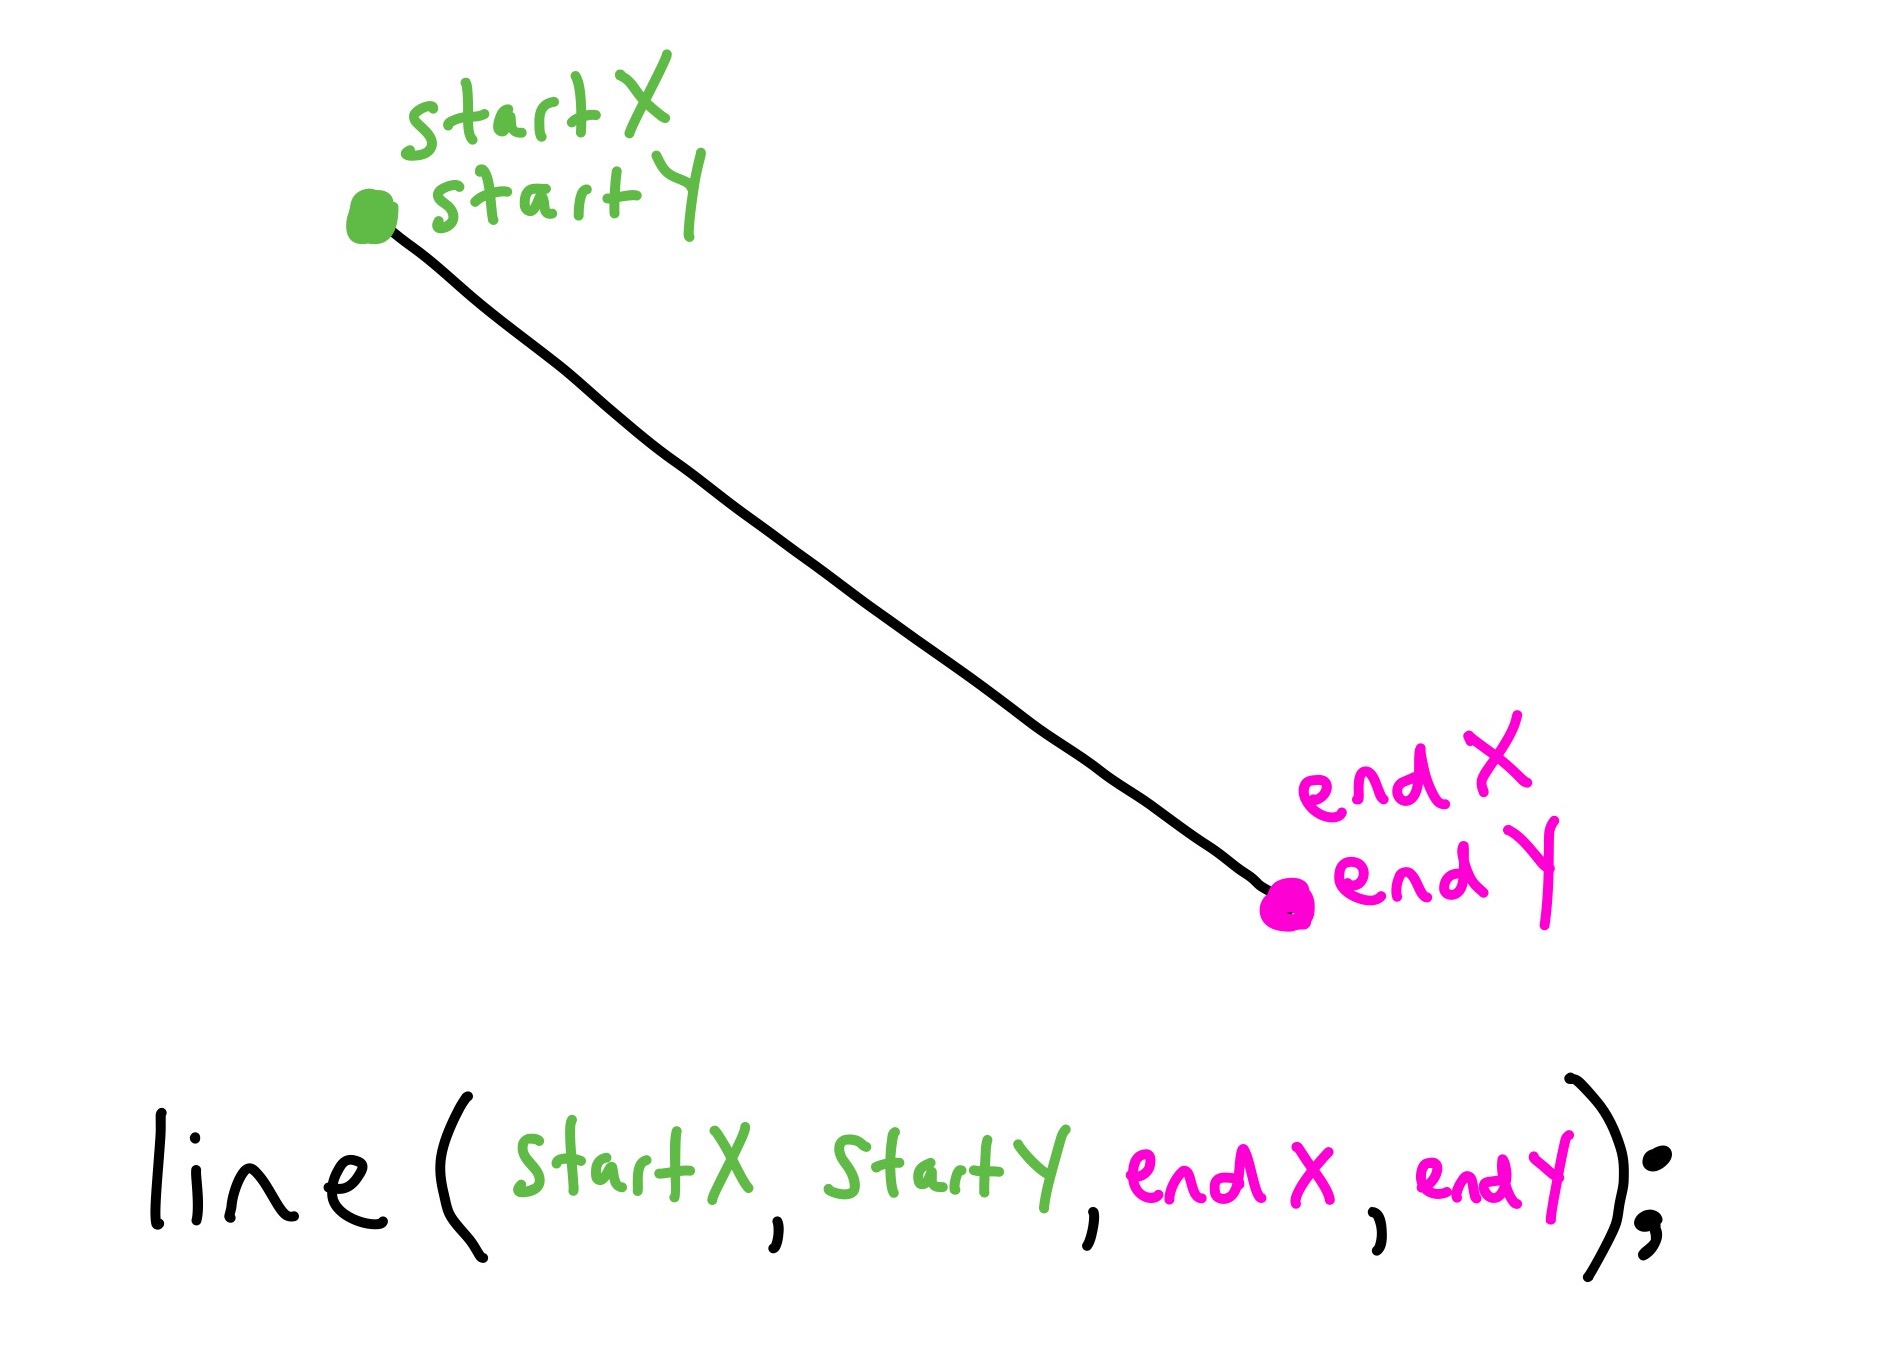 startX
startY
endX
endY
line(startX, startY, endX, endY);